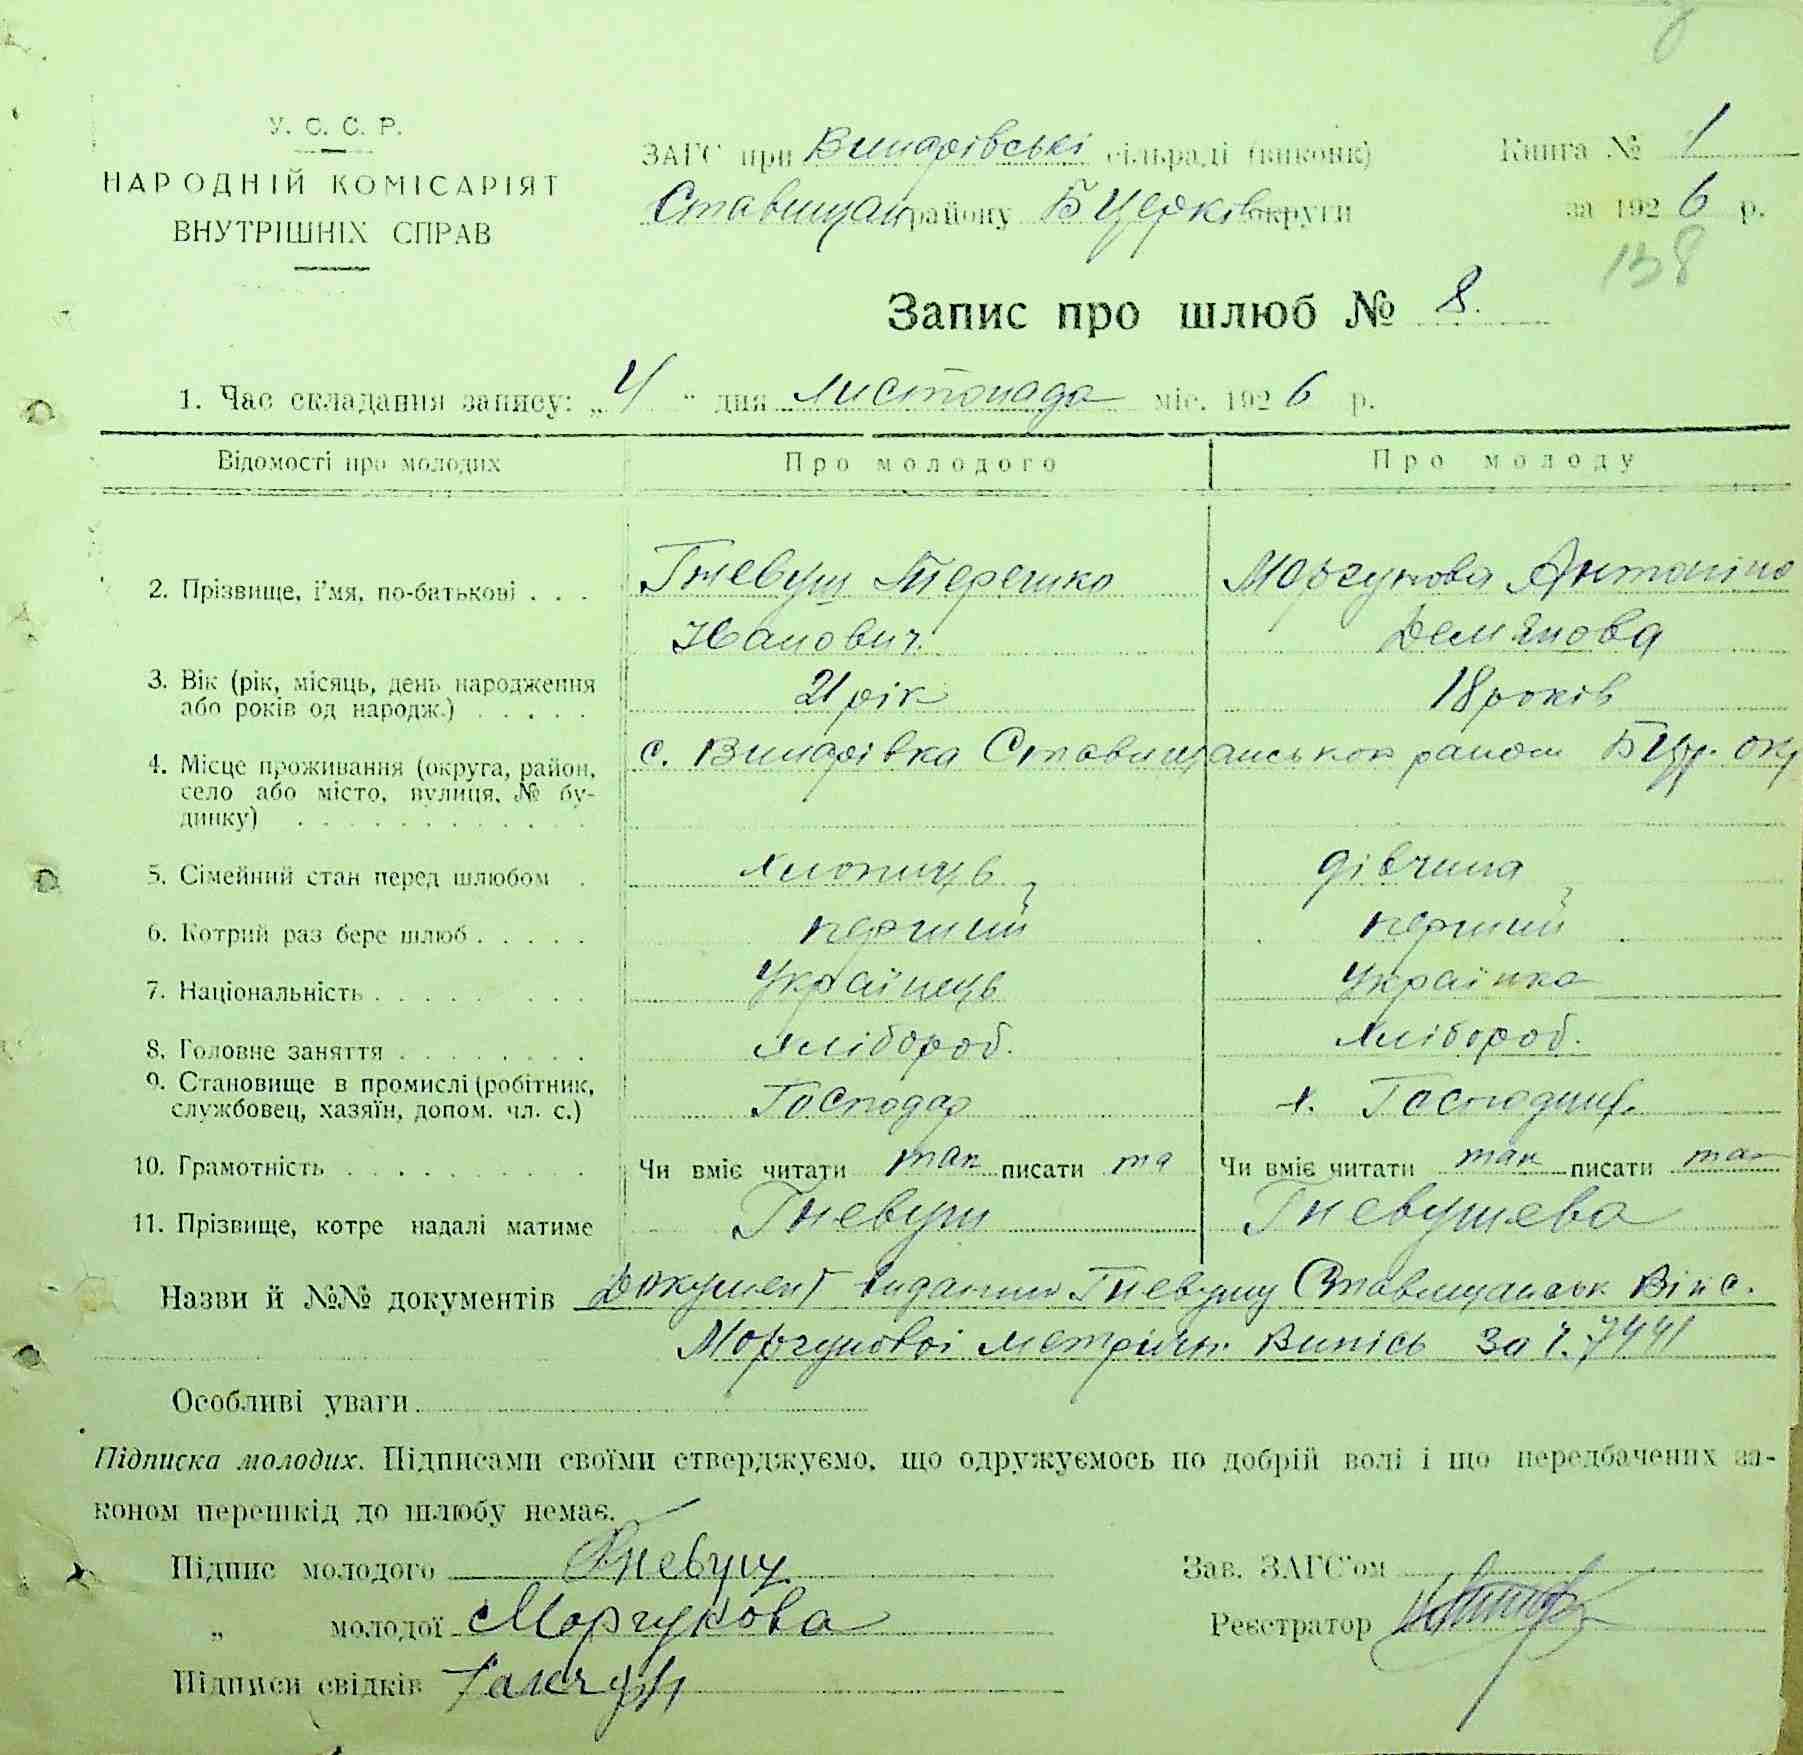 У. С. С. Р.
НАРОДНІЙ КОМІСАРІЯТ
ВНУТРІШНІХ СПРАВ
ЗАГС при Винарівські сільраді (виконк)
Ставищан району БЦерків округи
Книга № 1
за 1926 р.
138
Запис про шлюб № 8.
1. Час складання запису: „4" дня листопада міс. 1926 р.
Відомості про молодих Про молодого Про молоду
2. Прізвище, ім'я, по-батькові . . . Гневуш Терешко Моргунова Антоніна
Іванович. Демянова
3. Вік (рік, місяць, день народження 21 рік 18 років
або років од народж.) . . . . .
4. Місце проживання (округа, район, с. Винарівка Ставищанськог району БЦер. окр
село або місто, вулиця, № бу-
динку) . . . . . . . . . . . .
5. Сімейний стан перед шлюбом . хлопиць дівчина
6. Котрий раз бере шлюб . . . . . перший перший
7. Національність . . . . . . . . Українець Українка
8. Головне заняття . . . . . . . . хлібороб. хлібороб.
9. Становище в промислі (робітник, Господар х. Господин.
службовец, хазяїн, допом. чл. с.)
10. Грамотність . . . . . . . . . Чи вміє читати так писати та Чи вміє читати так писати так
11. Прізвище, котре надалі матиме Гневуш Гневушева
Назви й №№ документів Документ виданий Гневушу Ставищанськ Вікс.
Моргуновоі метричн. Випись за ч. 7441
Особливі уваги
Підписка молодих. Підписами своїми стверджуємо, що одружуємось по добрій волі і що передбачених за-
коном перешкід до шлюбу немає.
Підпис молодого Гневуш
Зав. ЗАГС'ом
„ молодої Моргунова
Реєстратор
Підписи свідків